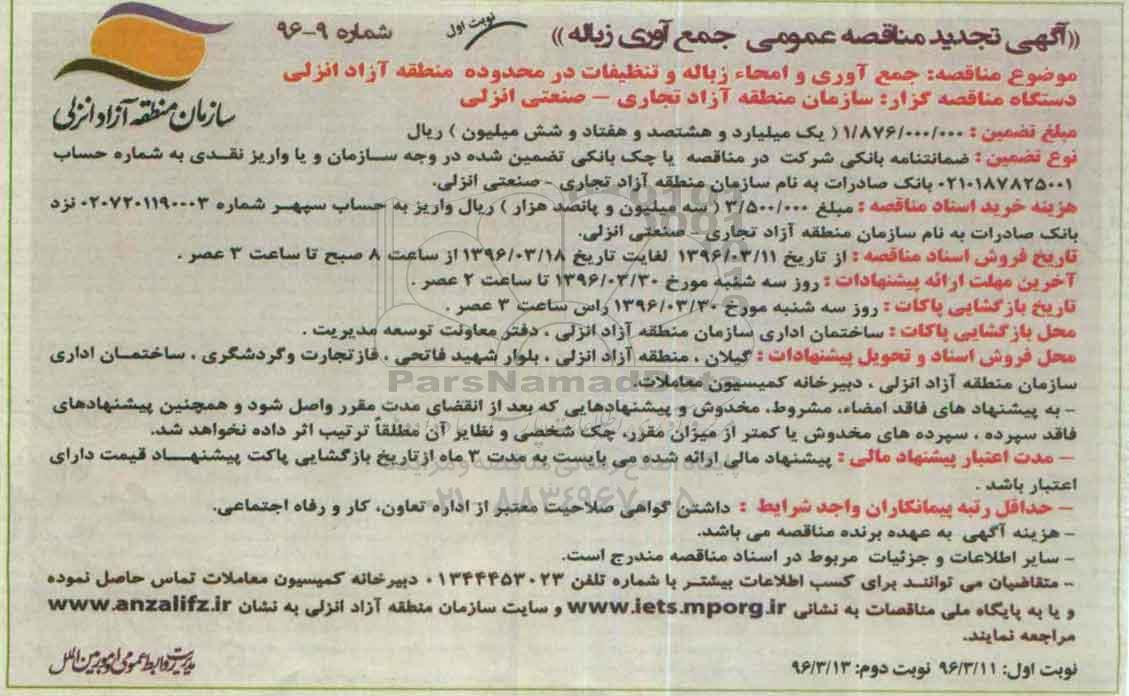 «آگهی تجدید مناقصه عمومی جمع آوری زباله» نوبت اول شماره ۹-۹۶
سازمان منطقه آزاد انزلی
موضوع مناقصه: جمع آوری و امحاء زباله و تنظیفات در محدوده منطقه آزاد انزلی
دستگاه مناقصه گزار: سازمان منطقه آزاد تجاری – صنعتی انزلی
مبلغ تضمین : ۱/۸۷۶/۰۰۰/۰۰۰ ( یک میلیارد و هشتصد و هفتاد و شش میلیون ) ریال
نوع تضمین : ضمانتنامه بانکی شرکت در مناقصه یا چک بانکی تضمین شده در وجه سازمان و یا واریز نقدی به شماره حساب
۰۲۱۰۱۸۷۸۲۵۰۰۱ بانک صادرات به نام سازمان منطقه آزاد تجاری - صنعتی انزلی.
هزینه خرید اسناد مناقصه : مبلغ ۳/۵۰۰/۰۰۰ ( سه میلیون و پانصد هزار ) ریال واریز به حساب سپهر شماره ۰۲۰۷۲۰۱۱۹۰۰۰۳ نزد
بانک صادرات به نام سازمان منطقه آزاد تجاری - صنعتی انزلی.
تاریخ فروش اسناد مناقصه : از تاریخ ۱۳۹۶/۰۳/۱۱ لغایت تاریخ ۱۳۹۶/۰۳/۱۸ از ساعت ۸ صبح تا ساعت ۳ عصر .
آخرین مهلت ارائه پیشنهادات : روز سه شنبه مورخ ۱۳۹۶/۰۳/۳۰ تا ساعت ۲ عصر .
تاریخ بازگشایی پاکات : روز سه شنبه مورخ ۱۳۹۶/۰۳/۳۰ راس ساعت ۳ عصر .
محل بازگشایی پاکات : ساختمان اداری سازمان منطقه آزاد انزلی ، دفتر معاونت توسعه مدیریت .
محل فروش اسناد و تحویل پیشنهادات : گیلان ، منطقه آزاد انزلی ، بلوار شهید فاتحی ، فاز تجارت وگردشگری ، ساختمان اداری
سازمان منطقه آزاد انزلی ، دبیرخانه کمیسیون معاملات.
ParsNamadData
- به پیشنهاد های فاقد امضاء، مشروط، مخدوش و پیشنهادهایی که بعد از انقضای مدت مقرر واصل شود و همچنین پیشنهادهای
فاقد سپرده ، سپرده های مخدوش یا کمتر از میزان مقرر، چک شخصی و نظایر آن مطلقاً ترتیب اثر داده نخواهد شد.
– مدت اعتبار پیشنهاد مالی : پیشنهاد مالی ارائه شده می بایست به مدت ۳ ماه ازتاریخ بازگشایی پاکت پیشنهاد قیمت دارای
اعتبار باشد .
۰۲۱ - ۸۸۳۴۹۶۷۰-۵
– حداقل رتبه پیمانکاران واجد شرایط : داشتن گواهی صلاحیت معتبر از اداره تعاون، کار و رفاه اجتماعی.
- هزینه آگهی به عهده برنده مناقصه می باشد.
- سایر اطلاعات و جزئیات مربوط در اسناد مناقصه مندرج است.
- متقاضیان می توانند برای کسب اطلاعات بیشتر با شماره تلفن ۰۱۳۴۴۴۵۳۰۲۳ دبیرخانه کمیسیون معاملات تماس حاصل نموده
و یا به پایگاه ملی مناقصات به نشانی www.iets.mporg.ir و سایت سازمان منطقه آزاد انزلی به نشان www.anzalifz.ir
مراجعه نمایند.
نوبت اول: ۹۶/۳/۱۱ نوبت دوم: ۹۶/۳/۱۳
مدیریت روابط عمومی و امور بین الملل